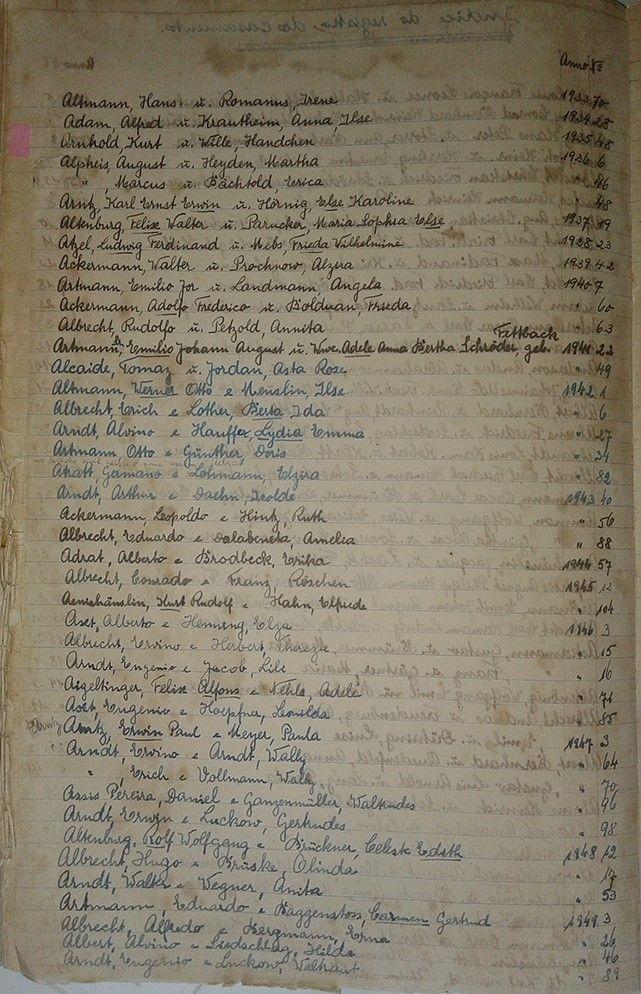 Indice do registro dos casamentos.
Anno No
Altmann, Hans u. Romanus, Irene 1933 70
Adam, Alfred u. Krautheim, Anna, Ilse 1934 28
Arnhold, Kurt u. Wille, Handchen 1935 48
Alpheis, August u. Heyden, Martha 1936 6
" , Marcus u. Bächtold, Erica " 46
Arntz, Karl Ernst Erwin u. Hörnig, Else Karoline " 48
Altenburg, Felix Walter u. Parucker, Maria Sophia Else 1937 19
Atzel, Ludwig Ferdinand u. Mebs, Frieda Wilhelmine 1938 23
Ackermann, Walter u. Prochnow, Alzera 1939 42
Artmann, Emilio Jor u. Landmann, Angela 1940 7
Ackermann, Adolfo Frederico u. Bolduan, Frieda " 60
Albrecht, Rudolfo u. Petzold, Annita " 63
Fettback
Artmann, Emilio Johann August u. Wwe. Adele Anna Bertha Schröder, geb. 1941 22
Alcaide, Tomaz u. Jordan, Asta Rose " 49
Altmann, Werner Otto e Menslin, Ilse 1942 1
Albrecht, Erich e Lother, Berta Ida " 6
Arndt, Alvino e Hauffer, Lydia Emma " 27
Artmann, Otto e Günther, Doris " 34
Germano e Lohmann, Elzira " 82
Arndt, Arthur e Daehn, Isolde 1943 10
Ackermann, Leopoldo e Hintz, Ruth " 56
Albrecht, Eduardo e Dalabeneta, Amelia " 88
Adrat, Alberto e Brodbeck, Erika 1944 57
Albrecht, Conrado e Franz, Röschen 1945 12
Kurt Rudolf e Hahn, Elfriede " 104
Axt, Alberto e Henning, Elza 1946 3
Albrecht, Ervino e Herbert, Thereza " 15
Arndt, Eugenio e Jacob, Lili " 16
Aigeltinger, Felix Alfons e Nehls, Adele " 71
Axt, Eugenio e Hoepfner, Leonilda " 85
Arntz, Erwin Paul e Meyer, Paula 1947 3
Arndt, Ervino e Arndt, Wally " 64
" , Erich e Vollmann, Wally " 70
Assis Pereira, Daniel e Ganzenmüller, Waltrudes " 96
Arndt, Erwin e Luckow, Gertrudes " 98
Altenburg, Rolf Wolfgang e Brückner, Celeste Edith 1948 12
Albrecht, Hugo e Brüske, Olinda " 17
Arndt, Walter e Wegner, Anita " 53
Artmann, Eduardo e Baggenstoss, Carmen Gertrud 1949 3
Albrecht, Alfredo e Bergmann, Erna " 26
Albert, Alvino e Liedschlag, Hilda " 46
Arndt, Eugenio e Luckow, Waltraut " 89